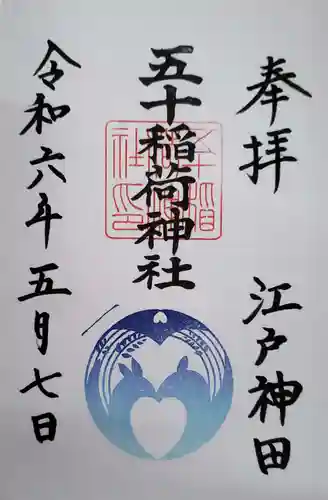 奉拝
江戸神田
五十稲荷神社
令和六年五月七日